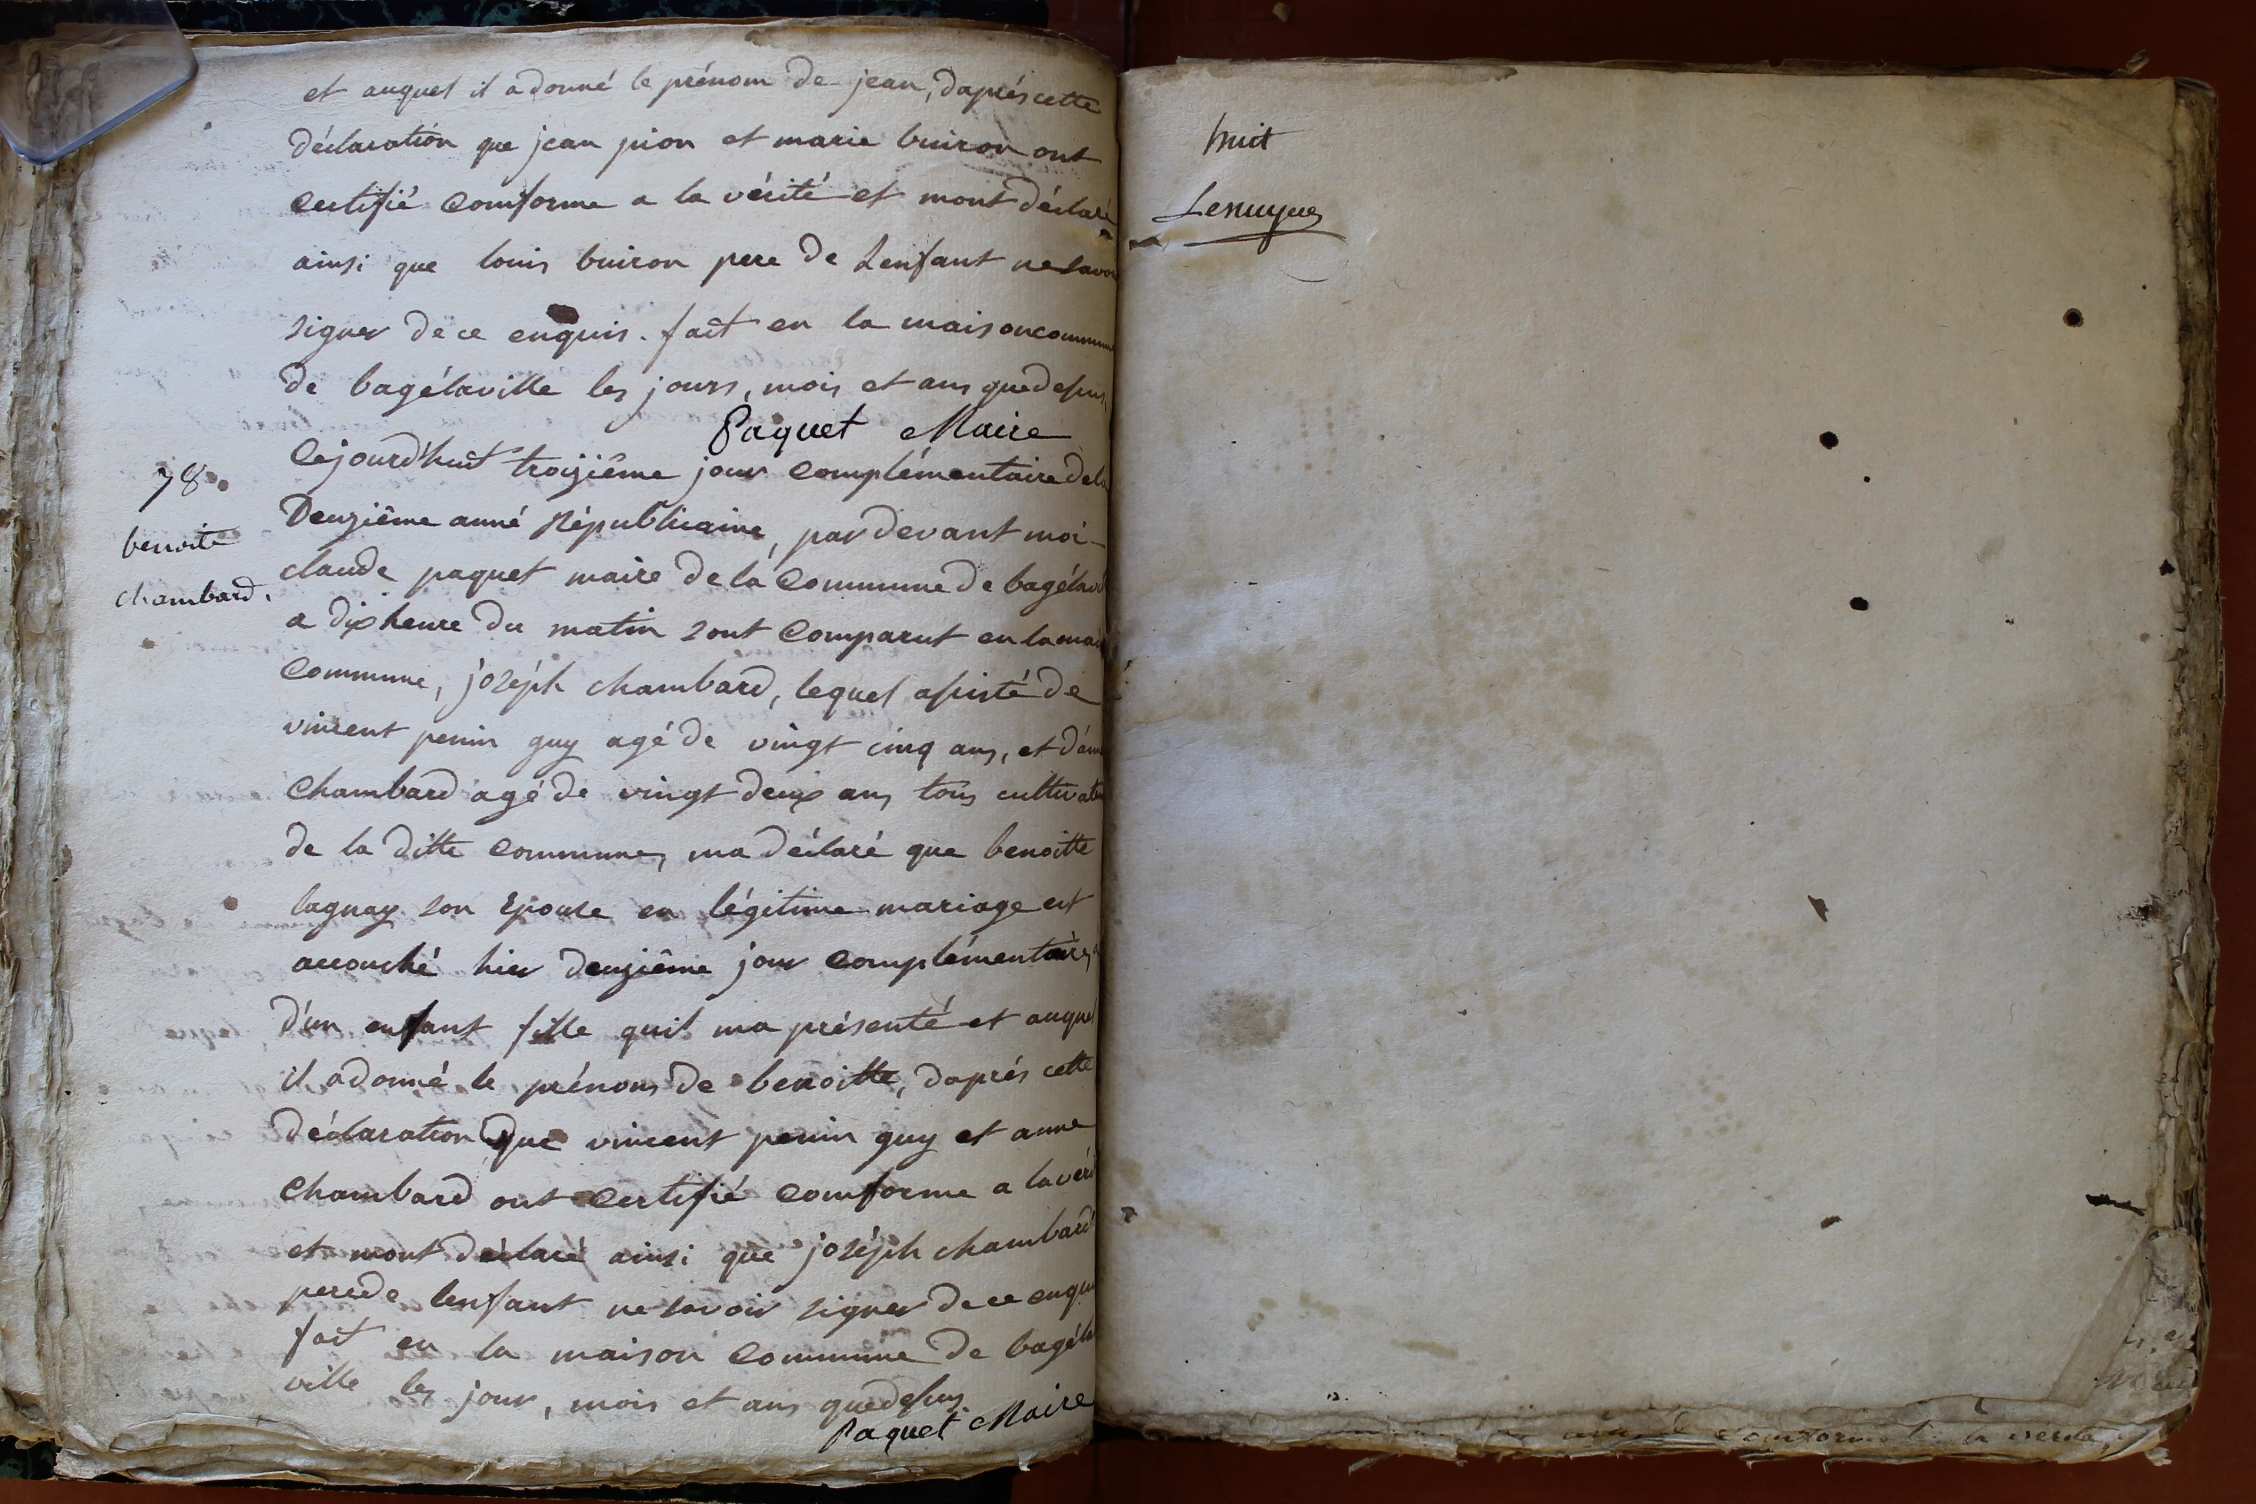 et auquel il a donné le prénom de jean, daprés cette
déclaration que jean pion et marie buiron ont
certifié comforme a la vérité et mont déclaré
ainsi que louis buiron pere de Lenfant ne savoi
signer de ce enquis. fait en la maison commune
de bagélaville les jours, mois et ans que desus,
Paquet Maire
78
benoite
chambard.
Cejourd'huit troizième jour complémentaire de la
Deuzième anné Républicaine, par devant moi
claude paquet maire de la Commune de bagélavi
a dix heure du matin sont comparut en la mai
commune, joséph chambard, lequel asisté de
vincent penin guy agé de vingt cinq ans, et d'ann
chambard agé de vingt deux ans tous cultivate
de la ditte commune, ma déclaré que benoitte
lagnay son Epouse en légitime mariage est
accouché hier deuzième jour complémentaire,
d'un enfant fille quil ma présenté et auquel
il a donné le prénom de benoitte, daprés cette
déclaration que vincent penin guy et anne
chambard ont certifié comforme a la véri
et mont déclaré ainsi que joséph chambard
pere de lenfant ne savoir signer de ce enqui
fait en la maison commune de bagéla
ville les jour, mois et ans que desus.
Paquet Maire
huit
comforme a la vérité,